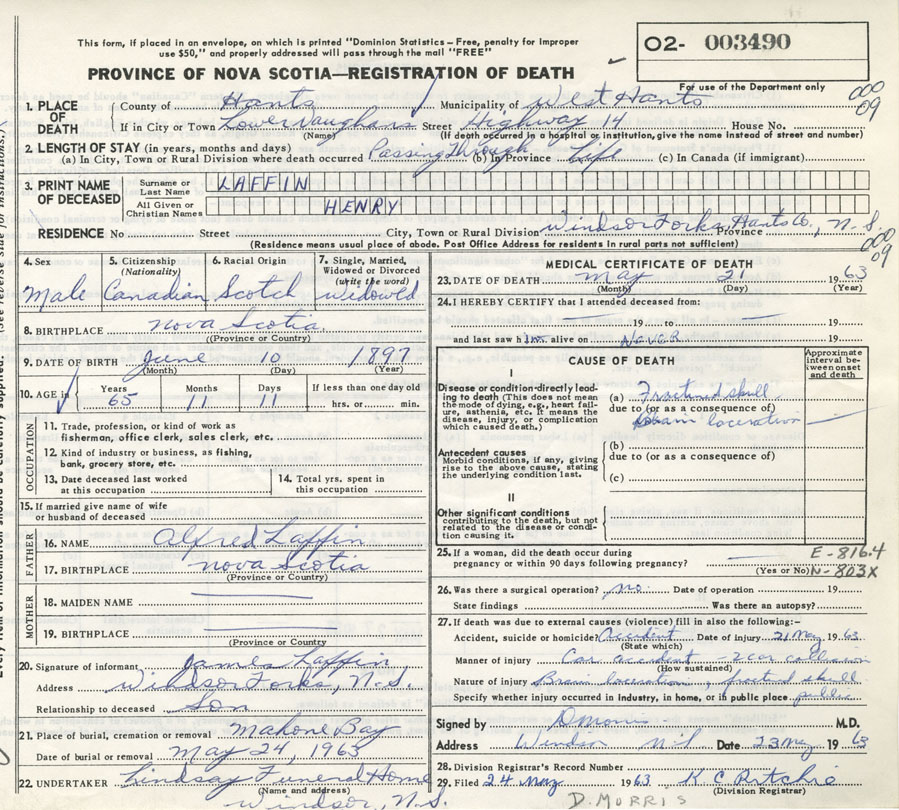 This form, if placed in an envelope, on which is printed "Dominion Statistics – Free, penalty for Improper
use $50," and properly addressed will pass through the mail "FREE"
O2- 003490
For use of the Department only
PROVINCE OF NOVA SCOTIA—REGISTRATION OF DEATH
000
09
1. PLACE OF DEATH
County of Hants Municipality of West Hants
If in City or Town Lower Vaughans Street Highway 14 House No.
(Name) (If death occurred in a hospital or institution, give the name instead of street and number)
2. LENGTH OF STAY (in years, months and days)
(a) In City, Town or Rural Division where death occurred Passing Through (b) In Province Life (c) In Canada (if immigrant)
3. PRINT NAME OF DECEASED
Surname or Last Name LAFFIN
All Given or Christian Names HENRY
RESIDENCE No Street City, Town or Rural Division Windsor Forks, Hants Co., Province N.S.
(Residence means usual place of abode. Post Office Address for residents in rural parts not sufficient)
000
09
4. Sex Male
5. Citizenship (Nationality) Canadian
6. Racial Origin Scotch
7. Single, Married, Widowed or Divorced (write the word) Widowed
8. BIRTHPLACE Nova Scotia
(Province or Country)
9. DATE OF BIRTH June 10 1897
(Month) (Day) (Year)
10. AGE in Years 65 Months 11 Days 11 If less than one day old hrs. or min.
OCCUPATION
11. Trade, profession, or kind of work as
fisherman, office clerk, sales clerk, etc.
12. Kind of industry or business, as fishing,
bank, grocery store, etc.
13. Date deceased last worked
at this occupation
14. Total yrs. spent in
this occupation
15. If married give name of wife
or husband of deceased
FATHER
16. NAME Alfred Laffin
17. BIRTHPLACE Nova Scotia
(Province or Country)
MOTHER
18. MAIDEN NAME
19. BIRTHPLACE
(Province or Country)
20. Signature of informant James Laffin
Address Windsor Forks, N.S.
Relationship to deceased Son
21. Place of burial, cremation or removal Mahone Bay
Date of burial or removal May 24, 1963
22. UNDERTAKER Lindsay Funeral Home
(Name and address)
Windsor, N.S.
MEDICAL CERTIFICATE OF DEATH
23. DATE OF DEATH May 21 1963
(Month) (Day) (Year)
24. I HEREBY CERTIFY that I attended deceased from:
19 to 19
and last saw him alive on Never 19
CAUSE OF DEATH
Approximate interval between onset and death
I
Disease or condition directly leading to death (This does not mean the mode of dying, e.g., heart failure, asthenia, etc. It means the disease, injury, or complication which caused death.)
(a) Fractured skull
due to (or as a consequence of)
Brain laceration
Antecedent causes
Morbid conditions, if any, giving rise to the above cause, stating the underlying condition last.
(b)
due to (or as a consequence of)
(c)
II
Other significant conditions
contributing to the death, but not related to the disease or condition causing it.
25. If a woman, did the death occur during
pregnancy or within 90 days following pregnancy?
(Yes or No)
E-816.4
N-803X
26. Was there a surgical operation? no. Date of operation 19
State findings Was there an autopsy?
27. If death was due to external causes (violence) fill in also the following:-
Accident, suicide or homicide? Accident Date of injury 21 May 1963
(State which)
Manner of injury Car accident - 2 car collision
(How sustained)
Nature of injury Brain laceration, fractured skull
Specify whether injury occurred in industry, in home, or in public place public
Signed by D Morris M.D.
Address Windsor NS Date 23 May 1963
28. Division Registrar's Record Number
29. Filed 24 May 1963 K C Ritchie
(Division Registrar)
D. MORRIS